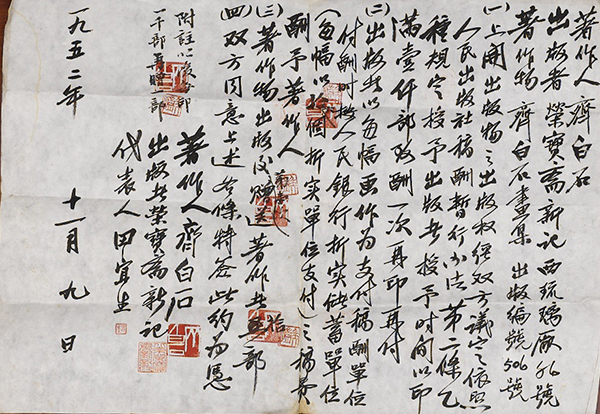 著作人 齊白石
出版者 榮寶齋新記 西琉璃廠56號
著作物 齊白石畫集 出版編號506號
(一)上開出版物之出版权經双方議定依照
人民出版社稿酬暫行办法第二條乙
種規定授予出版者授予时间以印
滿壹仟部致酬一次再印再付
(二)出版者以每幅画作为支付稿酬單位
付酬时按人民銀行折实儲蓄單位
(每幅以拾個折实單位支付)之稿費
酬予著作人
(三)著作物出版後贈送著作者拾部
(四)双方同意上述各條特签此約为憑
著作人齊白石
出版者榮寶齋新記
代表人
附註
一千部再贈一部
一九五二年 十一月九日